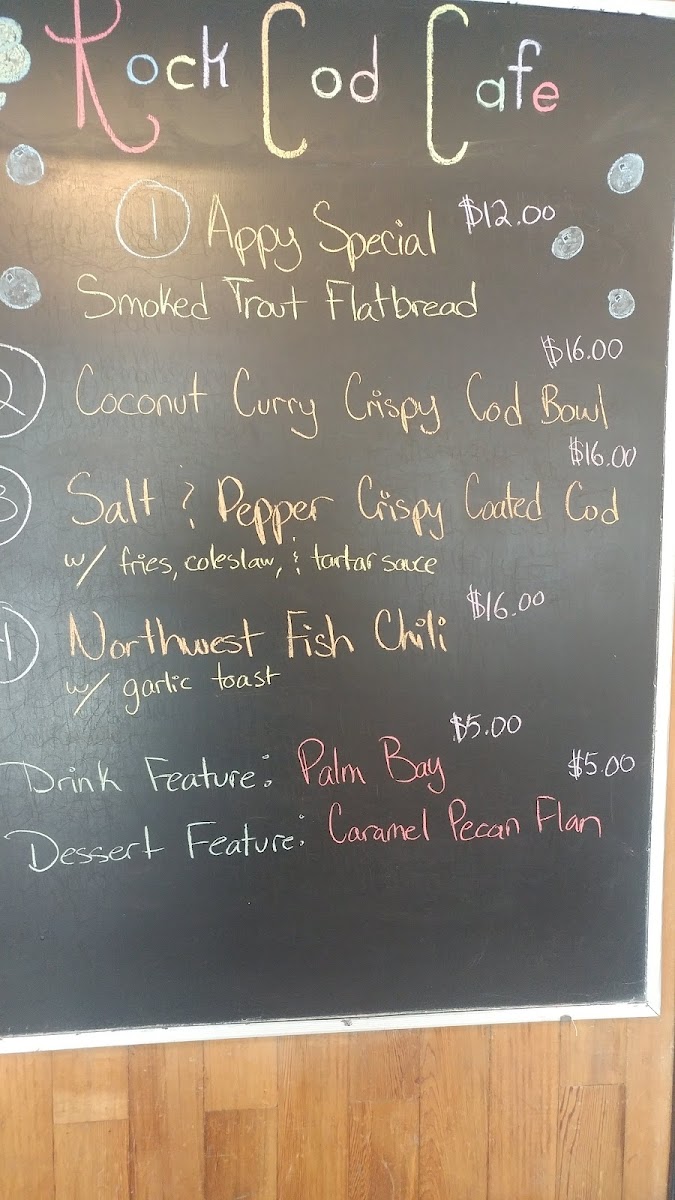 Rock Cod Cafe
1 Appy Special $12.00
Smoked Trout Flatbread
$16.00
2 Coconut Curry Crispy Cod Bowl
$16.00
3 Salt & Pepper Crispy Coated Cod
w/ fries, coleslaw, & tartar sauce
4 Northwest Fish Chili $16.00
w/ garlic toast
$5.00
Drink Feature: Palm Bay
$5.00
Dessert Feature: Caramel Pecan Flan